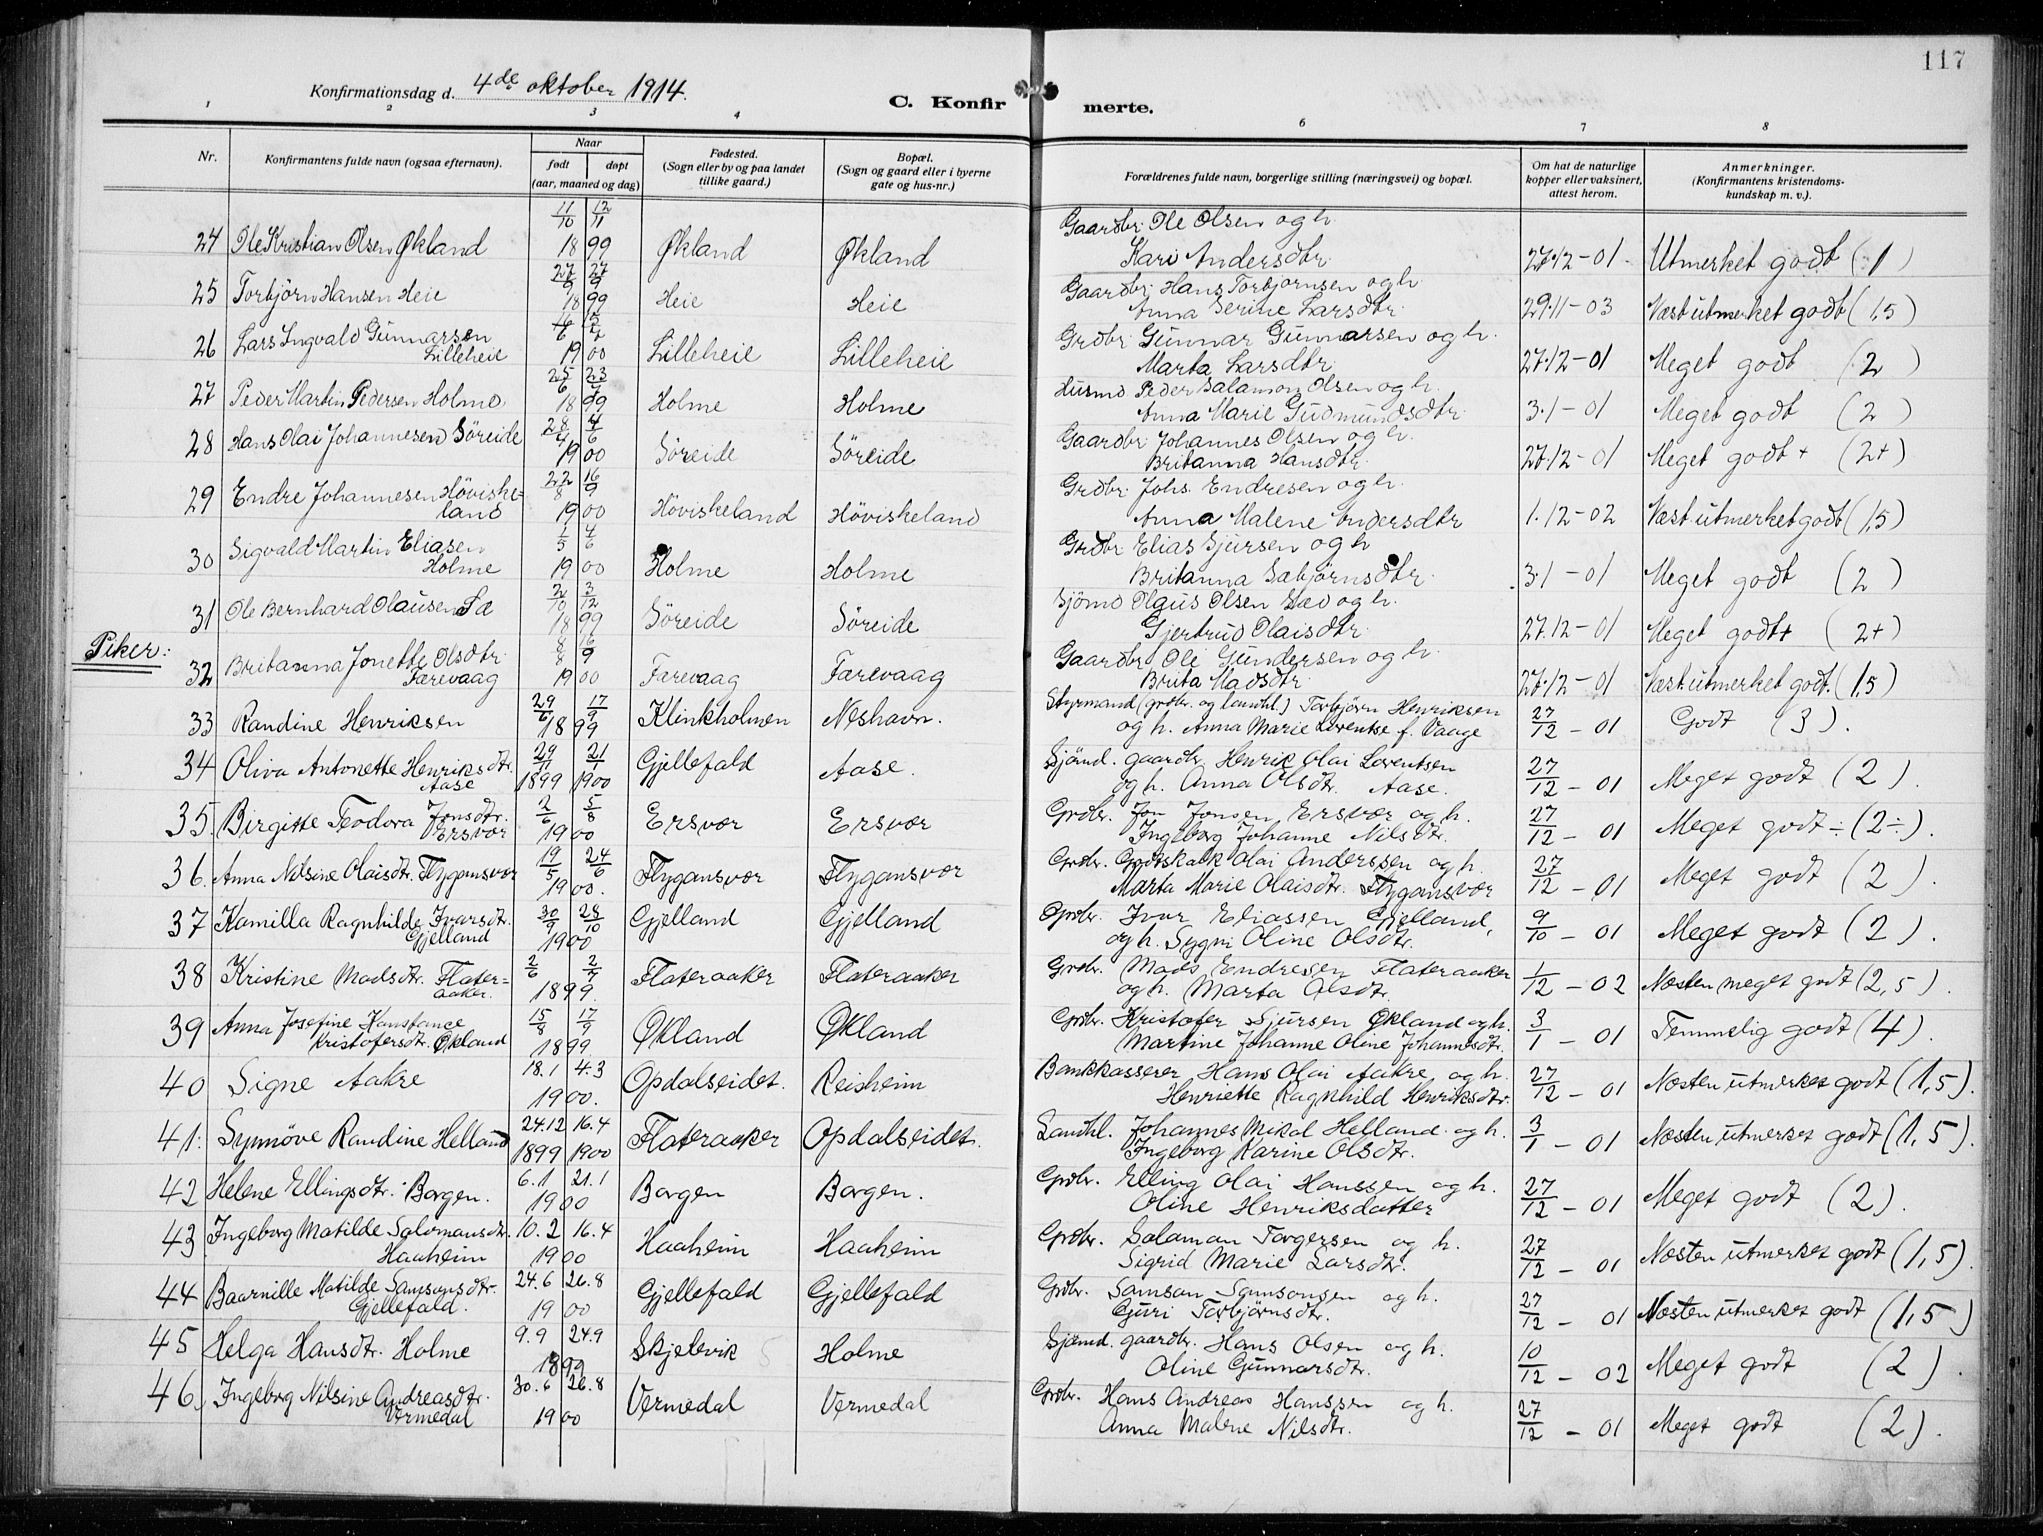 117
Konfirmationsdag d. 4de oktober 1914.
C. Konfirmerte.
1 2 3 4 6 7 8
Nr. Konfirmantens fulde navn (ogsaa efternavn). Naar født døpt (aar, maaned og dag) Fødested. (Sogn eller by og paa landet tillike gaard.) Bopæl. (Sogn og gaard eller i byerne gate og hus-nr.) Forældrenes fulde navn, borgerlige stilling (næringsvei) og bopæl. Om hat de naturlige kopper eller vaksinert, attest herom. Anmerkninger. (Konfirmantens kristendomskundskap m. v.).
24 Ole Kristian Olsen Økland 11/10 12/11 1899 Økland Økland Gaardbr. Ole Olsen og h. Kari Andersdtr. 27.12-01. Utmerket godt (1)
25 Torbjörn Hansen Heie 27/9 1899 Heie Heie Gaardbr. Hans Torbjørnsen og h. Anna Serine Larsdtr. 29.11-03 Næst utmerket godt (1,5)
26 Lars Ingvald Gunnarsen Lilleheie 1900 Lilleheie Lilleheie Grdbr. Gunnar Gunnarsen og h. Marta Larsdtr. 27.12-01 Meget godt (2)
27 Peder Martin Pedersen Holme 25/6 23/7 1899 Holme Holme Husmd Peder Salamon Olsen og h. Anna Marie Gudmundsdtr. 3.1-01 Meget godt (2)
28 Hans Olai Johannesen Söreide 28/4 4/6 1900 Söreide Söreide Gaardbr. Johannes Olsen og h. Britanna Hansdtr. 27.12-01 Meget godt + (2+)
29 Endre Johannesen Höviskeland 22/8 16/9 1900 Höviskeland Höviskeland Grdbr. Johs. Endresen og h. Anna Malene Andersdtr 1.12-02 Næst utmerket godt (1,5)
30 Sigvald Martin Eliasen Holme 1/5 4/6 1900 Holme Holme Grdbr Elias Sjursen og h Britanna Sæbjörnsdtr. 3.1-01 Meget godt (2)
31 Ole Bernhard Olausen Sæ 2/10 3/12 1899 Söreide Söreide Sjömd Olaus Olsen Sæ og h. Gjertrud Olaisdtr. 27.12-01 Meget godt + (2+)
Piker:
32 Britanna Jonette Olsdtr. Færevaag 8/8 16/9 1900 Færevaag Færevaag Gaardbr Ole Gundersen og h. Brita Madsdtr. 27.12-01 Næst utmerket godt. (1,5)
33 Randine Henriksen 29/6 17/9 1899 Klinkholmen Neshavn. Styrmand (grdbr. og landhl.) Torbjörn Henriksen og h. Anna Marie Lorentse f. Vaage 27/12 - 01 Godt (3).
34 Oliva Antonette Henriksdtr. Aase 29/11 21/1 1899 1900 Gjellefald Aase. Sjömd. gaardbr. Henrik Olai Lorentsen og h. Anna Olsdtr. Aase. 27/12 - 01 Meget godt (2).
35. Birgitte Teodora Jonsdtr. Ersvær 2/6 5/8 1900 Ersvær Ersvær Grdbr. Jon Jonsen Ersvær og h. Ingeborg Johanne Nilsdtr. 27/12 - 01 Meget godt ÷ (2÷).
36. Anna Nilsine Olaisdtr. Flygansvær 19/5 24/6 1900. Flygansvær Flygansvær Grdbr. Godskalk Olai Anderssen og h. Marta Marie Olaisdtr. Flygansvær 27/12 - 01 Meget godt (2).
37 Kamilla Ragnhilde Ivarsdtr. Gjelland 30/9 28/10 1900 Gjelland Gjelland Grdbr. Ivar Eliassen Gjelland, og h. Sygni Oline Olsdtr. 9/10 - 01 Meget godt (2).
38 Kristine Madsdtr. Flateraaker. 2/6 2/7 1899. Flateraaker Flateraaker Grdbr. Mads Endresen Flateraaker og h. Marta Olsdtr. 1/12 - 02 Næsten meget godt (2,5).
39 Anna Josefine Konstance Kristofersdtr. Økland 15/8 17/9 1899 Økland Økland Grdbr. Kristofer Sjursen Økland og h. Martine Johanne Oline Johannesdtr. 3/1 - 01 Temmelig godt (4).
40 Signe Aakre 18.1 4.3 1900. Opdalseidet. Reisheim Bankkasserer Hans Olai Aakre og h. Henriette Ragnhild Henriksdtr. 27/12 - 01 Næsten utmerket godt (1,5).
41. Synnöve Randine Helland 24.12 16.4 1899 1900 Flateraaker Opdalseidet. Landhl. Johannes Mikal Helland og h. Ingeborg Karine Olsdtr. 3/1 - 01 Næsten utmerket godt (1,5).
42 Helene Ellingsdtr. Borgen. 6.1 21.1 1900 Borgen Borgen. Grdbr. Elling Olai Hanssen og h. Oline Henriksdatter 27/12 - 01 Meget godt (2).
43 Ingeborg Matilde Salomansdtr. Haaheim 10.2 16.4 1900 Haaheim Haaheim Grdbr. Salaman Torgersen og h. Sigrid Marie Larsdtr. 27/12 - 01 Næsten utmerket godt (1,5).
44 Baarnille Matilde Samsonsdtr. Gjellefald. 24.6 26.8 1900 Gjellefald Gjellefald Grdbr. Samson Samsonsen og h. Guri Torbjörnsdtr. 27/12 - 01 Næsten utmerket godt (1,5)
45 Helga Hansdtr. Holme 9.9 24.9 1899 Skjelevik Holme Sjömd. gaardbr. Hans Olsen og h. Oline Gunnarsdtr. 10/12 - 02 Meget godt (2).
46. Ingeborg Nilsine Andreasdtr. Vermedal 30.6 26.8 1900 Vermedal Vermedal Grdbr. Hans Andreas Hanssen og h. Anna Malene Nilsdtr. 27/12 - 01 Meget godt (2).